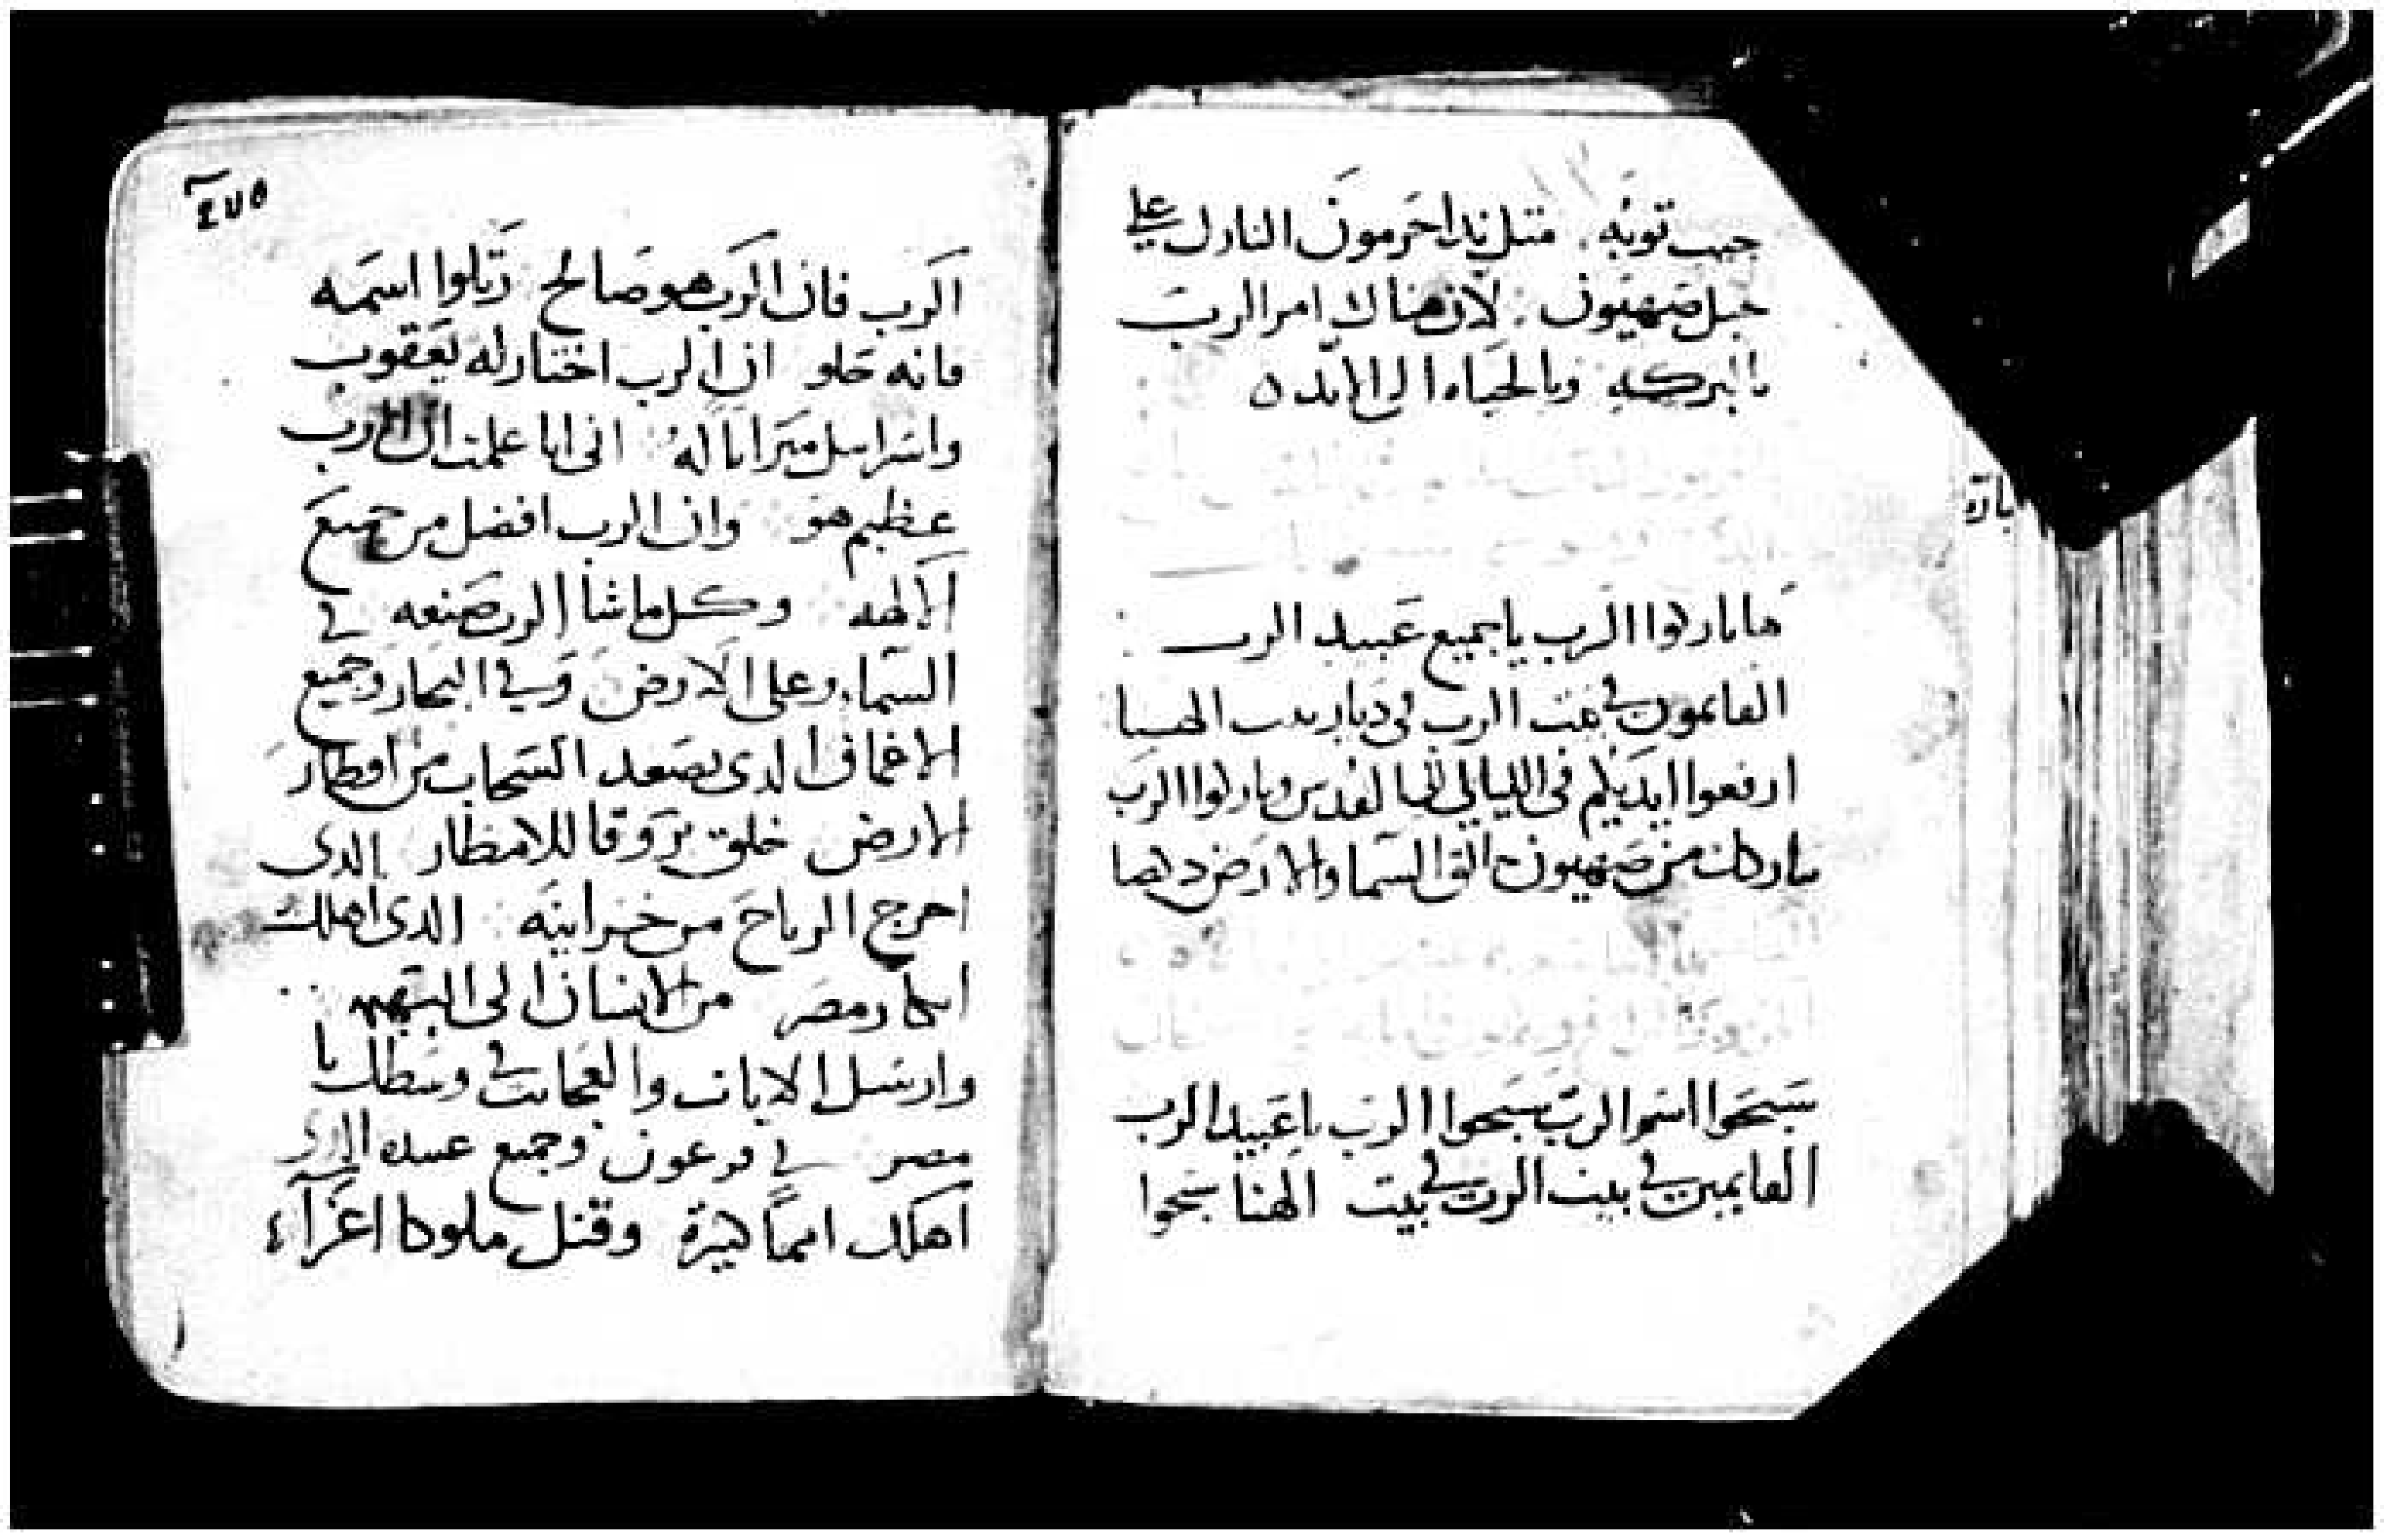 جيب توبه . متل ندا حرمون النازل علي
جبل صهيون : لان هناك امر الرب
بالبركه وبالحياه الي الابد ه
ها باركوا الرب يا جميع عبيد الرب :
القايمون في بيت الرب في ديار بيت الهنا
ارفعوا ايديكم في الليالي القدس وباركوا الرب
يباركك من صهيون خالق السما والارض
سبحوا اسم الرب سبحوا الرب يا عبيد الرب
القايمين في بيت الرب في بيت الهنا سبحوا
٤٧٥
الرب فان الرب هو صالح رتلوا اسمه
فانه حلو ان الرب اختار له يعقوب
واسراييل ميراثا له اني انا علمت ان الرب
عظيم هو وان الرب افضل من جميع
الالهه وكل ما شا الرب صنعه في
السماء وعلي الارض وفي البحار وجميع
الاغماق الدي يصعد السحاب من اقطار
الارض خلق بروقا للامطار الدي
اخرج الرياح من خزاينه الدي اهلك
ابكار مصر من الانسان الي البهيمه
وارسل الايات والعجايب في وسطك يا
مصر في فرعون وجميع عبيده الدي
اهلك امما كثيرة وقتل ملوكا اعزآء